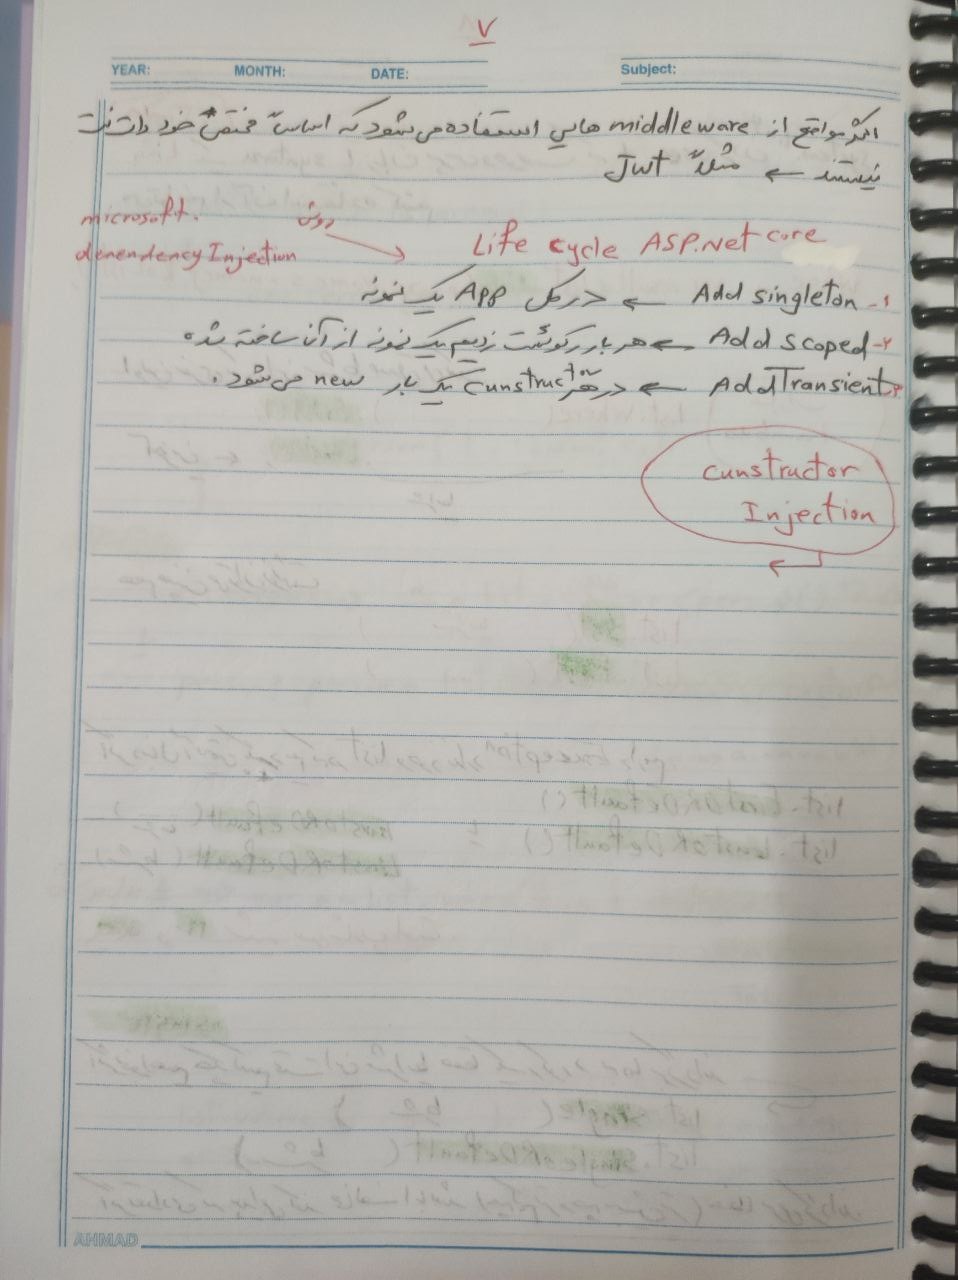 ۷
YEAR: MONTH: DATE: Subject:
اکثر مواقع از middleware هایی استفاده می‌شود که اساساً مختص خود دات نت
نیستند ← مثلاً Jwt
microsoft. روش
denendency Injection → Life cycle ASP.Net core
۱- Add singleton ← در کل App یک نمونه
۲- Add scoped ← هر بار رکوئست زدیم یک نمونه از آن ساخته شده
۳- AddTransient ← در هر cunstructor یک بار new می‌شود.
cunstructor
Injection
AHMAD